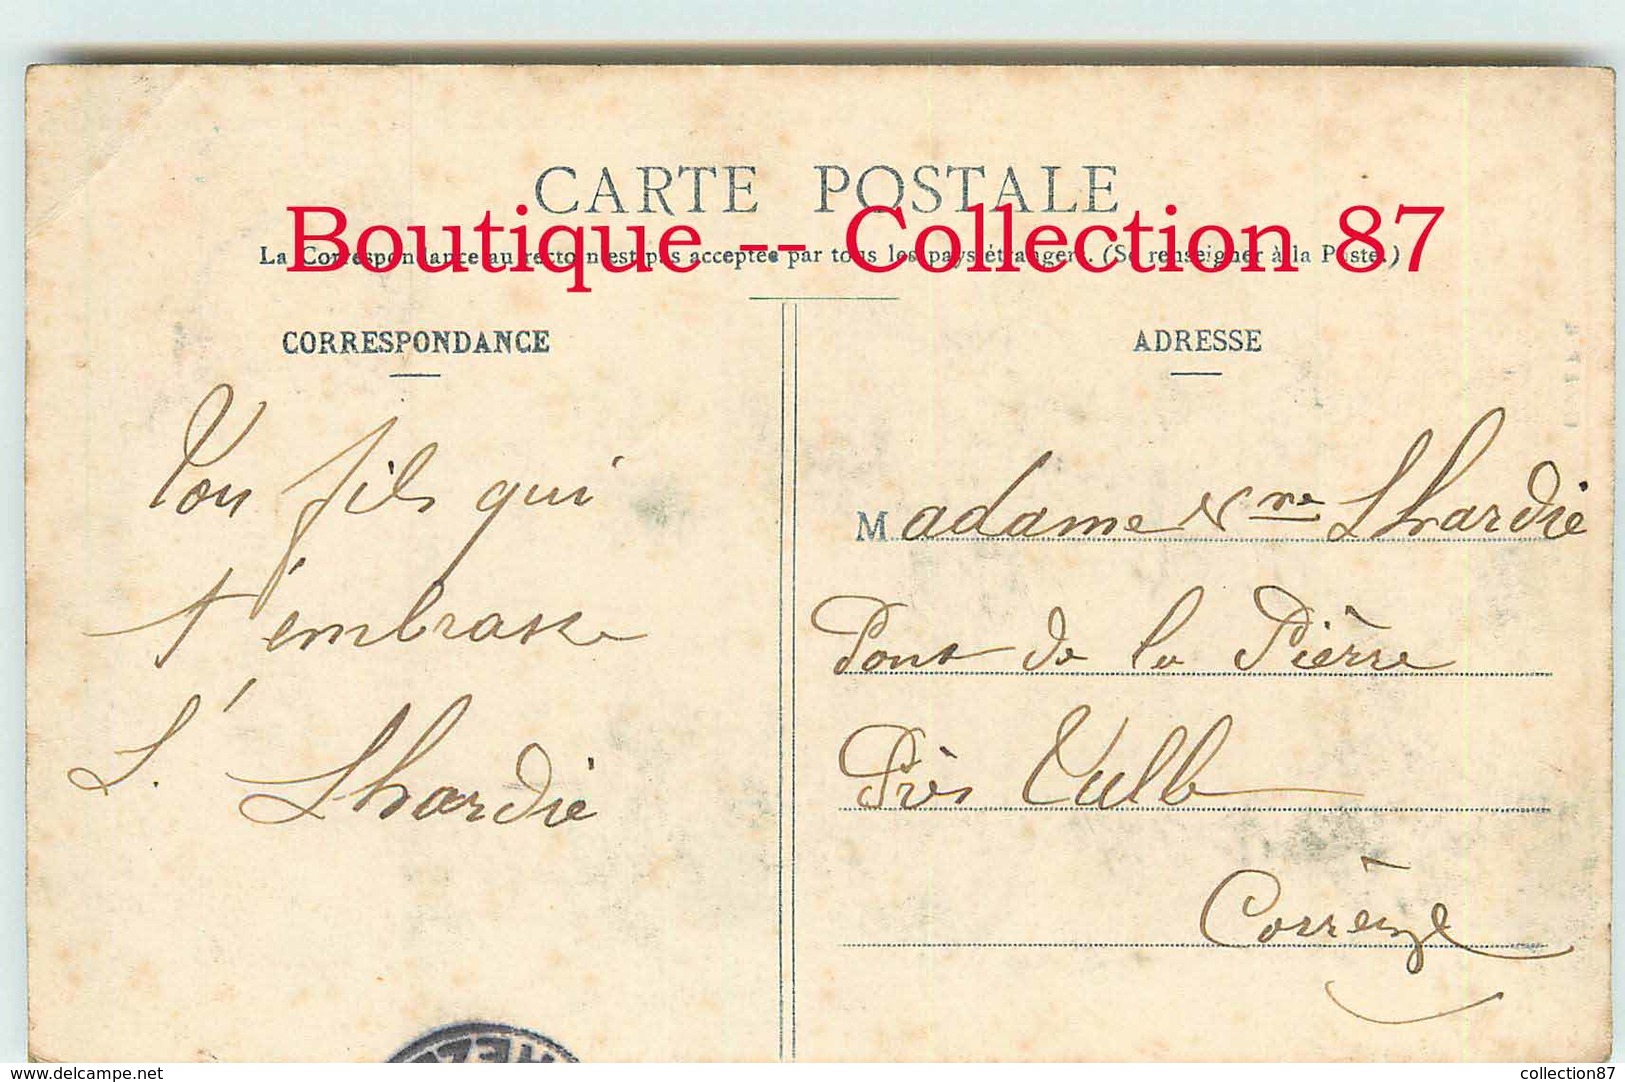 CARTE POSTALE
Boutique -- Collection 87
La Correspondance au recto n'est pas acceptée par tous les pays étrangers. (Se renseigner à la Poste.)
CORRESPONDANCE
ADRESSE
Ton fils qui
t'embrasse
L. Lhardie
Madame Vve Lhardie
Pont de la Pierre
Près Tulle
Corrèze
delcampe.net
collection87